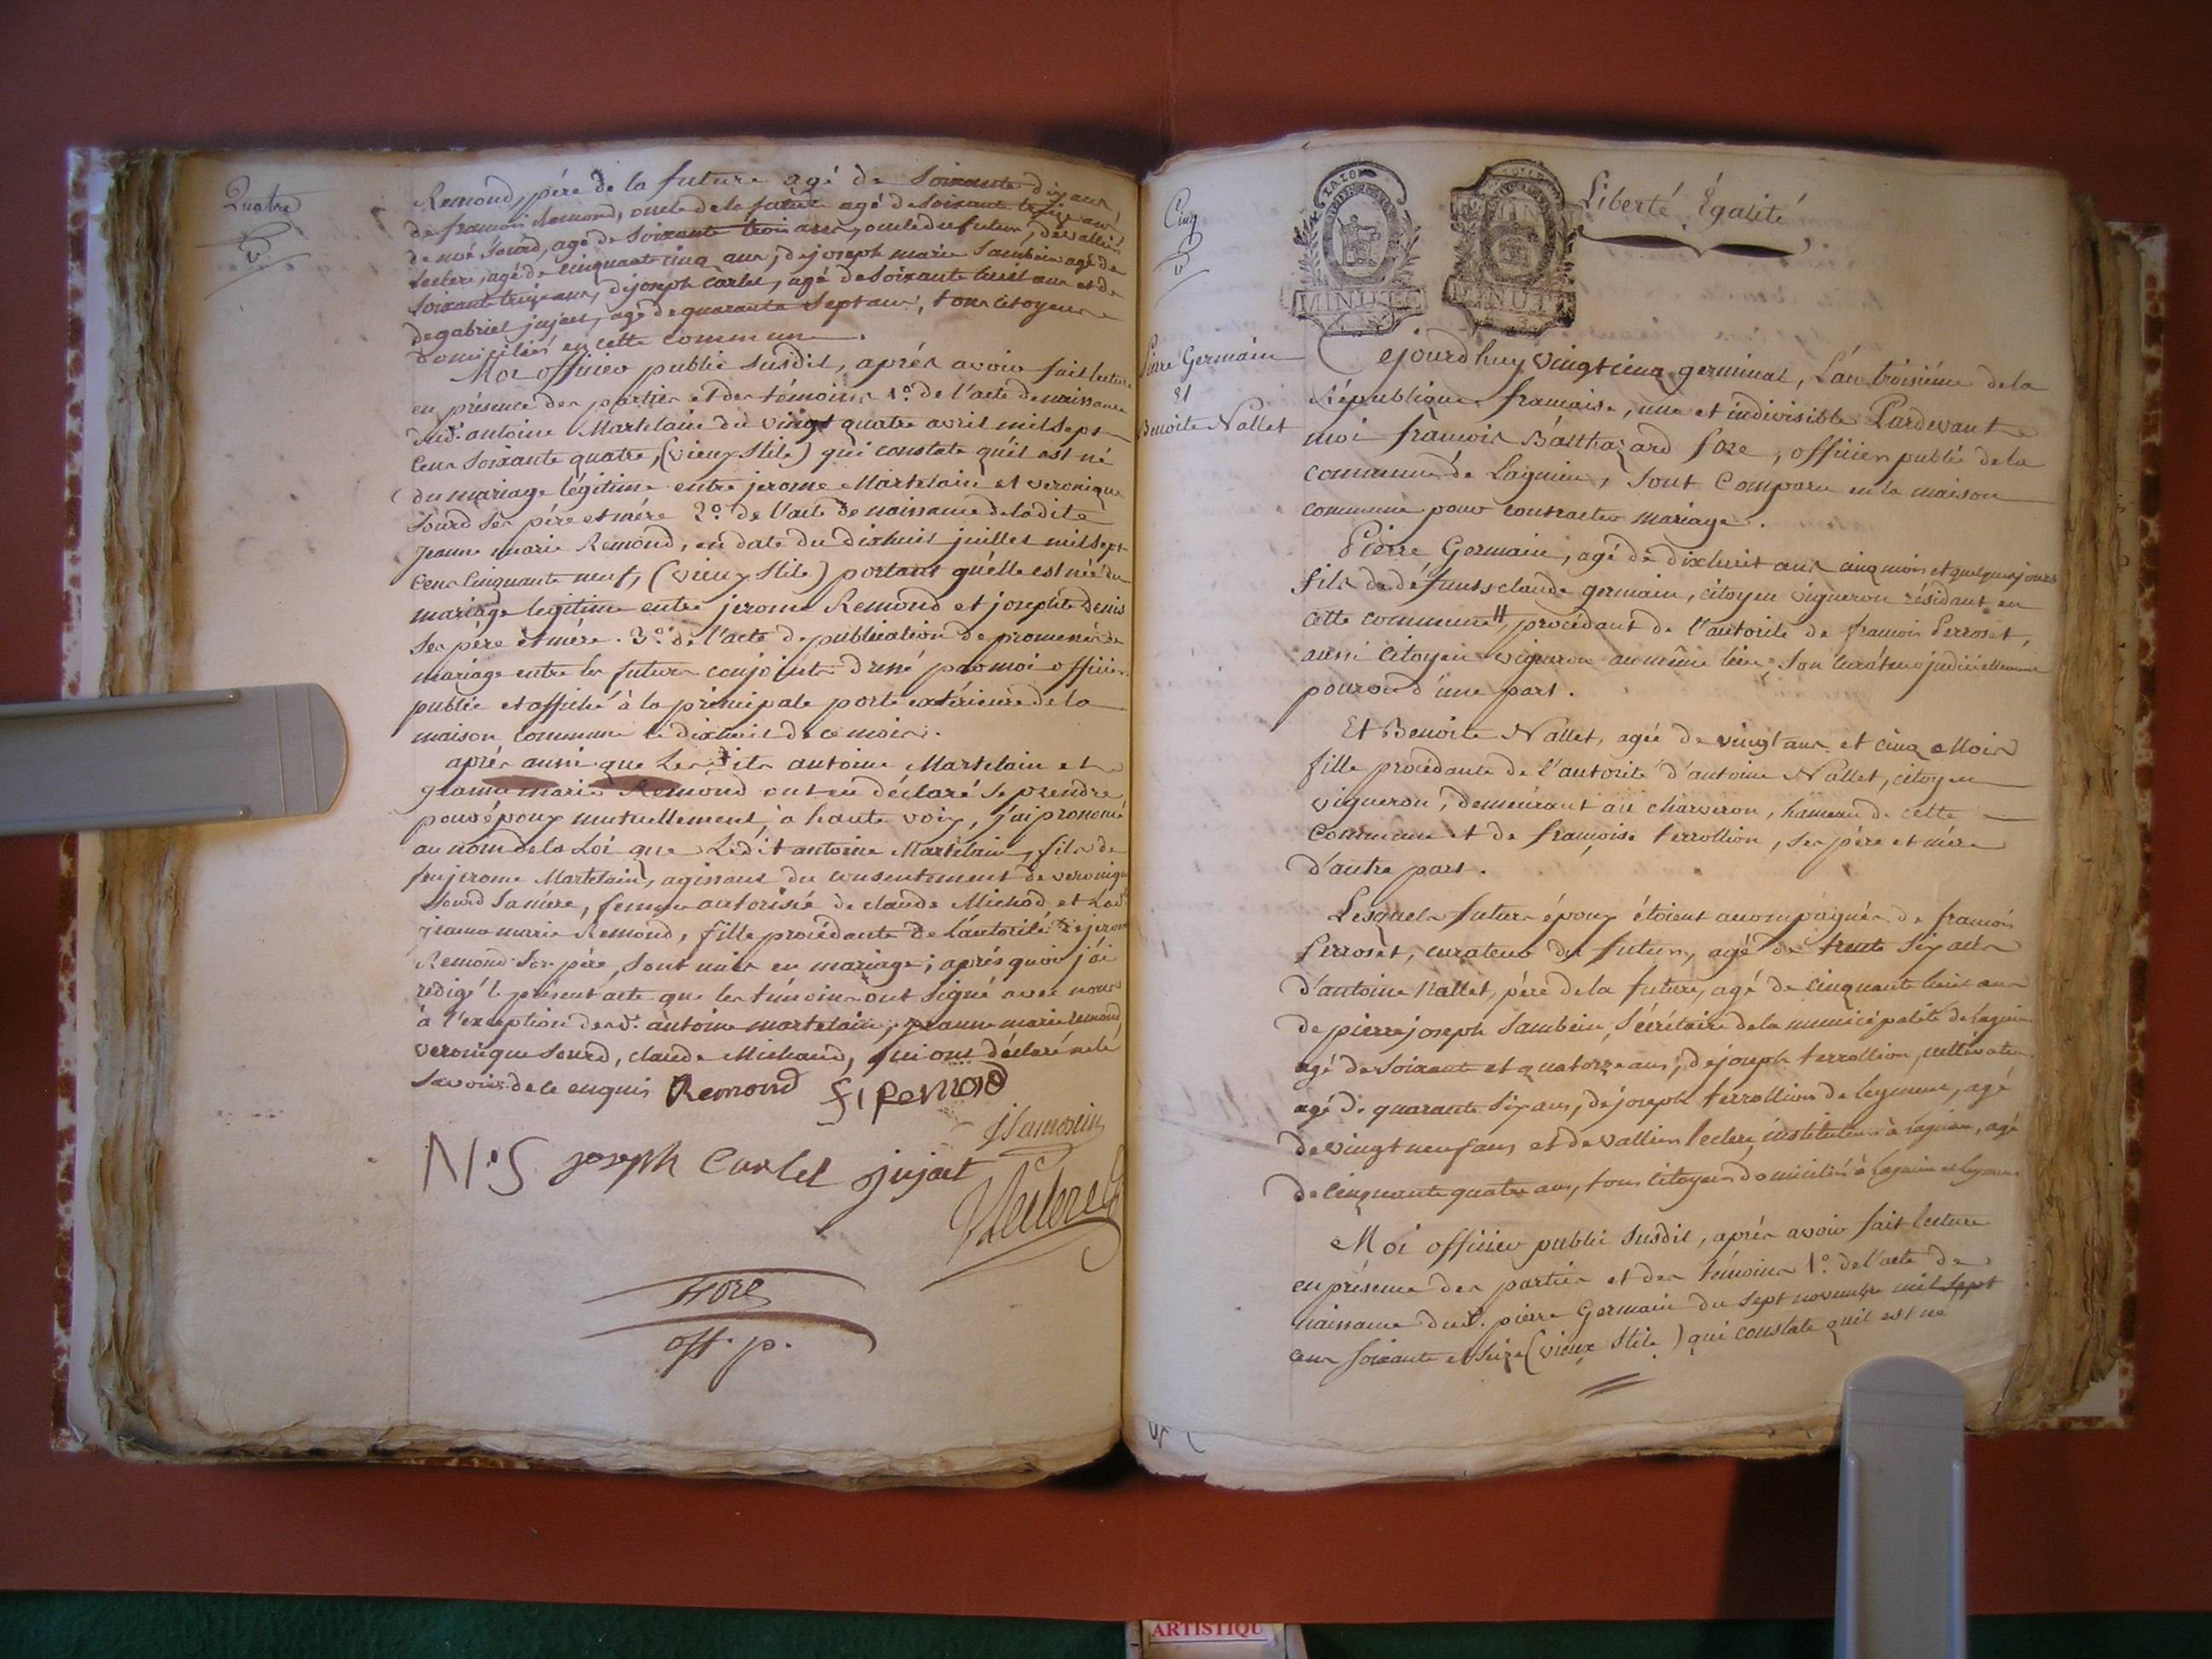 Quatre
Remond, père de la future agé de Soixante dix ans
de françois Remond, oncle de la future agé de soixante treize ans
de noé Sourd, agé de Soixante trois ans, oncle du futur, de vallier
Leclerc, agé de cinquante cinq ans, de joseph marie Sambein agé de
Soixante treize ans, de joseph Carlet, agé de Soixante huit ans et de
de gabriel jujat, agé de quarante Sept ans, tous Citoyens
domiciliés en cette commune.
Moi officier public susdit, après avoir fait lecture
en présence des parties et des témoins 1.° de l'acte de naissance
dud. antoine Martelain du vingt quatre avril mil sept
Cens Soixante quatre, (vieux Stile) qui constate qu'il est né
du mariage légitime entre jerome Martelain et veronique
Sourd ses père et mère 2.° de l'acte de naissance de ladite
Jeanne marie Remond, en date du dixhuit juillet mil sept
Cens Cinquante neuf, (vieux Stile) portant qu'elle est née du
mariage legitime entre jerome Remond et josephte Denis
Ses père et mère. 3.° de l'acte de publication de promesse de
mariage entre les futurs conjoints dressé par moi officier
public et affiché à la principale porte extérieure de la
maison commune le dixhuit de ce mois.
après aussi que Les dits antoine Martelain et
jeanne marie Remond ont eu déclaré Se prendre
pour époux mutuellement, à haute voix, j'ai prononcé
au nom de la Loi que Ledit antoine Martelain, fils de
feu jerome Martelain, agissant du consentement de veronique
Sourd Sa mère, femme autorisée de claude Michod et Lad.
jeanne marie Remond, fille procédante de l'autorité de jerome
Remond Son père, Sont unis en mariage; après quoi j'ai
redigé le présent acte que les témoins ont Signé avec nous
à l'exception desd. antoine martelain, jeanne marie Remond,
veronique Sourd, claude Michaud, qui ont déclaré ne le
Savoir de ce enquis Remond f. Remond
N. S joseph Carlet jujat
Leclerc
off. p.
Cinq
Liberté Égalité
MINUTE MINUTE
Pierre Germain
Et
Benoite Nallet
Cejourd'huy vingt cinq germinal, L'an troisième de la
République française, une et indivisible Pardevant
moi françois Balthazard fore, officier public de la
commune de Lagnieu, Sont Comparu en la maison
commune pour contracter mariage.
Pierre Germain, agé de dixhuit ans cinq mois et quelques jours
fils de défunt claude germain, citoyen vigneron résidant en
cette commune, procédant de l'autorité de françois Perroset,
aussi Citoyen vigneron au même lieu, Son curateur judiciellement
pourvu d'une part.
Et Benoite Nallet, agée de vingt ans et cinq Mois
fille procédante de l'autorité d'antoine Nallet, citoyen
vigneron, demeurant au charveron, hameau de cette
Commune et de françoise terrollion, Ses père et mère
d'autre part.
Lesquels futurs époux étoient accompagnés de françois
Perroset, curateur du futur, agé de trente Six ans
d'antoine Nallet, père de la future, agé de cinquante huit ans
de pierre joseph Sambein, Sécrétaire de la municipalité de Lagnieu
agé de Soixante et quatorze ans, de joseph terrollion, cultivateur
agé de quarante Six ans, de joseph terrollion de leyment, agé
de vingt neuf ans et de vallier leclerc, instituteur à Lagnieu, agé
de Cinquante quatre ans, tous Citoyens domiciliés à Lagnieu et Leyment
Moi officier public Susdit, après avoir fait lecture
en présence des parties et des témoins 1.° de l'acte de
naissance dud. pierre Germain du Sept novembre mil Sept
cens Soixante et Seize (vieux Stile) qui constate qu'il est né
ARTISTIQU